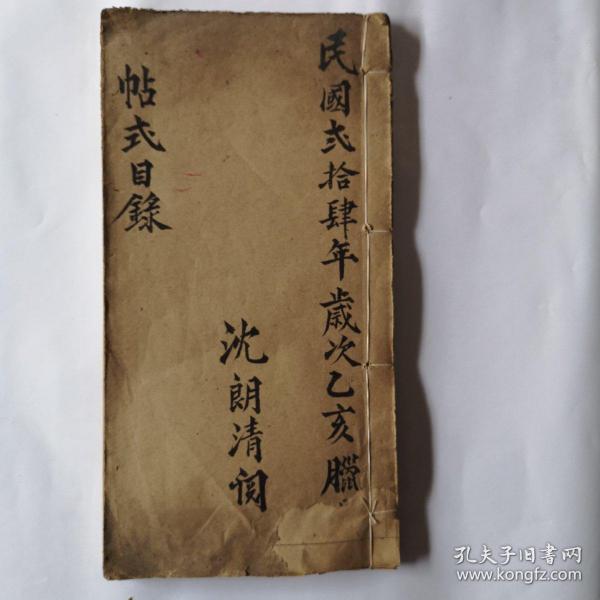 民國弍拾肆年歲次乙亥臘
沈朗清閱
帖式目錄
孔夫子旧书网
www.kongfz.com